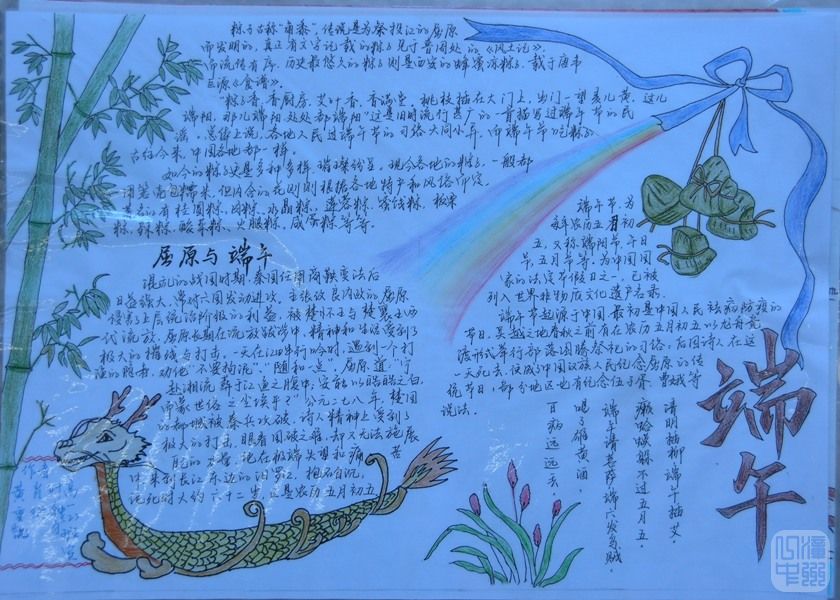 粽子古称"角黍",传说是为祭投江的屈原
而发明的,真正有文字记载的粽子见于晋周处的《风土记》。
而流传有序,历史最悠久的粽子则是西安的蜂蜜凉粽子,载于唐韦
巨源《食谱》。
"粽子香,香厨房,艾叶香,香满堂,桃枝插在大门上,出门一望麦儿黄,这儿
端阳,那儿端阳,处处都端阳"这是旧时流行甚广的一首描写过端午节的民
谣,总体上说,各地人民过端午节的习俗大同小异,而端午节吃粽子
古往今来,中国各地都一样。
如今的粽子更是多种多样,璀璨纷呈。现今各地的粽子,一般都
用箬壳包糯米,但内含的花则根据各地特产和风俗而定,
著名的有桂圆粽、肉粽、水晶粽、莲蓉粽、蜜饯粽、板栗
粽、辣粽、酸菜粽、火腿粽、咸蛋粽等等。
屈原与端午
混乱的战国时期,秦国任用商鞅变法后
日益强大,常对六国发动进攻,主张改良内政的屈原
侵害了上层统治阶级的利益,被楚怀王与楚襄王两
代流放,屈原长期在流放跋涉中,精神和生活受到了
极大的摧残与打击,一天在江畔行吟时,遇到一个打
渔的隐者,劝他"不要拘泥""随和一点",屈原道:"宁
赴湘流,葬于江鱼之腹中,安能以皓皓之白,
而蒙世俗之尘埃乎?"公元二七八年,楚国
的都城被秦兵攻破,诗人精神上受到了
极大的打击,眼看国破之难,却又无法施展
自己的力量,他在极端失望和痛苦
中来到长江东边的汨罗江,抱石自沉,
他死时大约六十二岁,这是农历五月初五
端午节,为
每年农历五月初
五,又称端阳节、午日
节、五月节等,为中国国
家的法定节假日之一,已被
列入世界非物质文化遗产名录。
端午节起源于中国,最初是中国人民祛病防疫的
节日,吴越之地春秋之前有在农历五月初五以龙舟竞
渡形式举行部落图腾祭祀的习俗;后因诗人在这
一天死去,便成了中国汉族人民纪念屈原的传
统节日;部分地区也有纪念伍子胥、曹娥等
说法。
清明插柳,端午插艾。
癞蛤蟆躲不过五月五。
端午请菩萨,端六发乌贼。
喝了雄黄酒,
百病远远丢。
端午